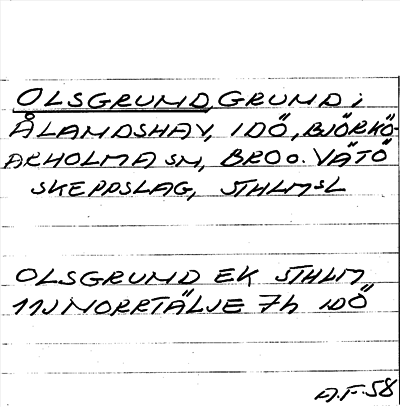 OLSGRUND, GRUND i
ÅLANDSHAV, IDÖ, BJÖRKÖ-
ARHOLMA SN, BRO o. VÄTÖ
SKEPPSLAG, STHLMSL
OLSGRUND EK STHLM
11J NORRTÄLJE 7h IDÖ
A.F. 58